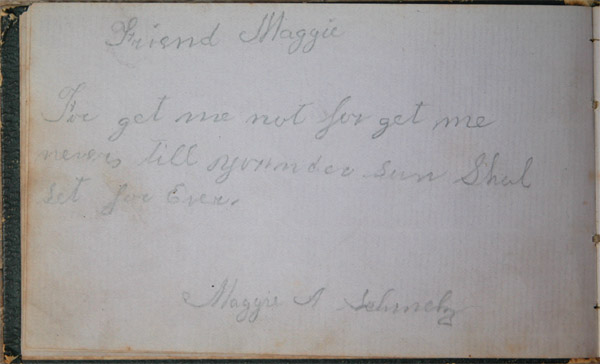 Friend Maggie
For get me not for get me
never till yournder sun Shal
set for Ever.
Maggie A